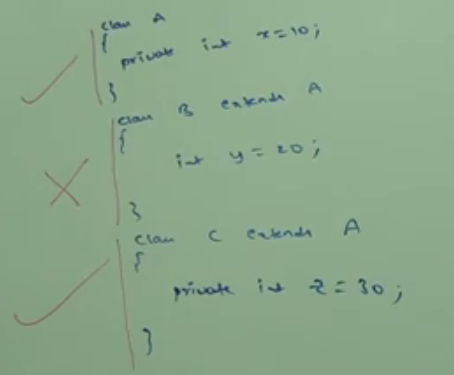 class A
{
private int x=10;
}
class B extends A
{
int y = 20;
}
class C extends A
{
private int z = 30;
}